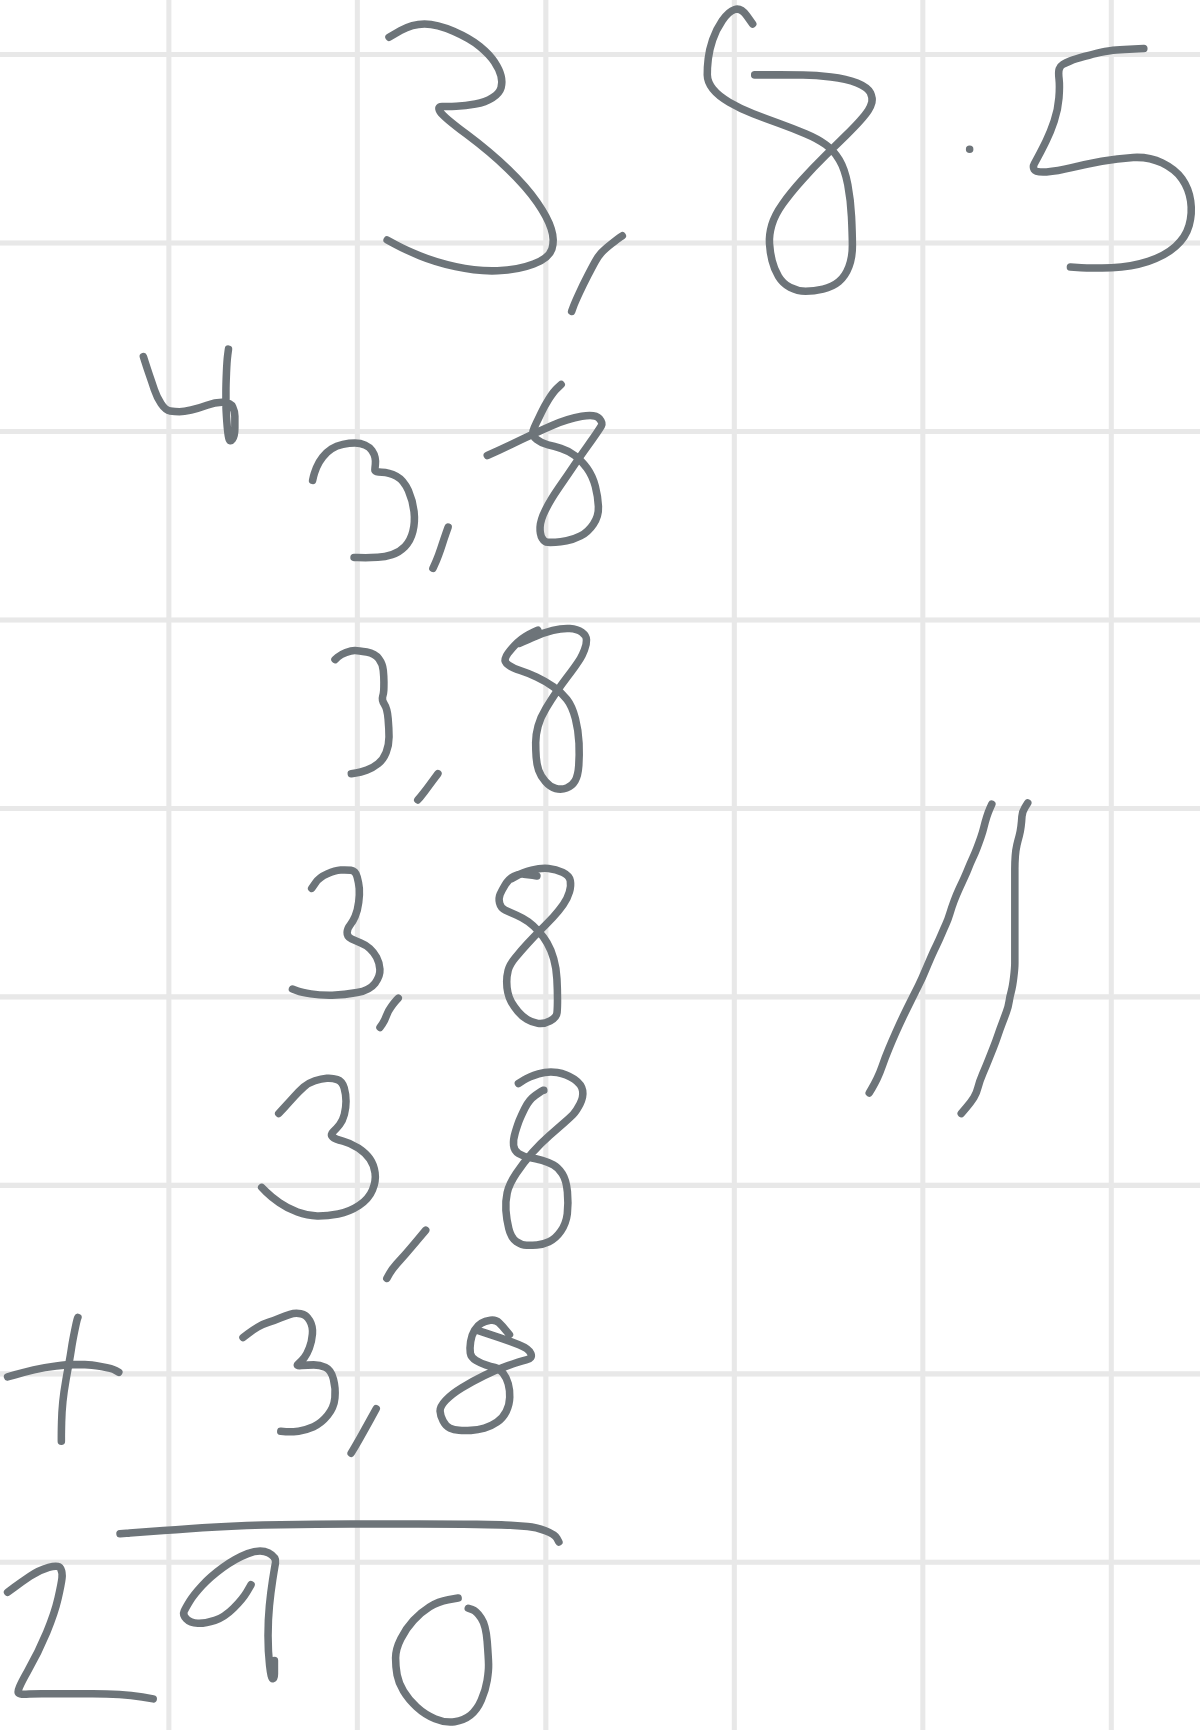 3,8 · 5
4
3,8
3,8
3,8 //
3,8
+ 3,8
290